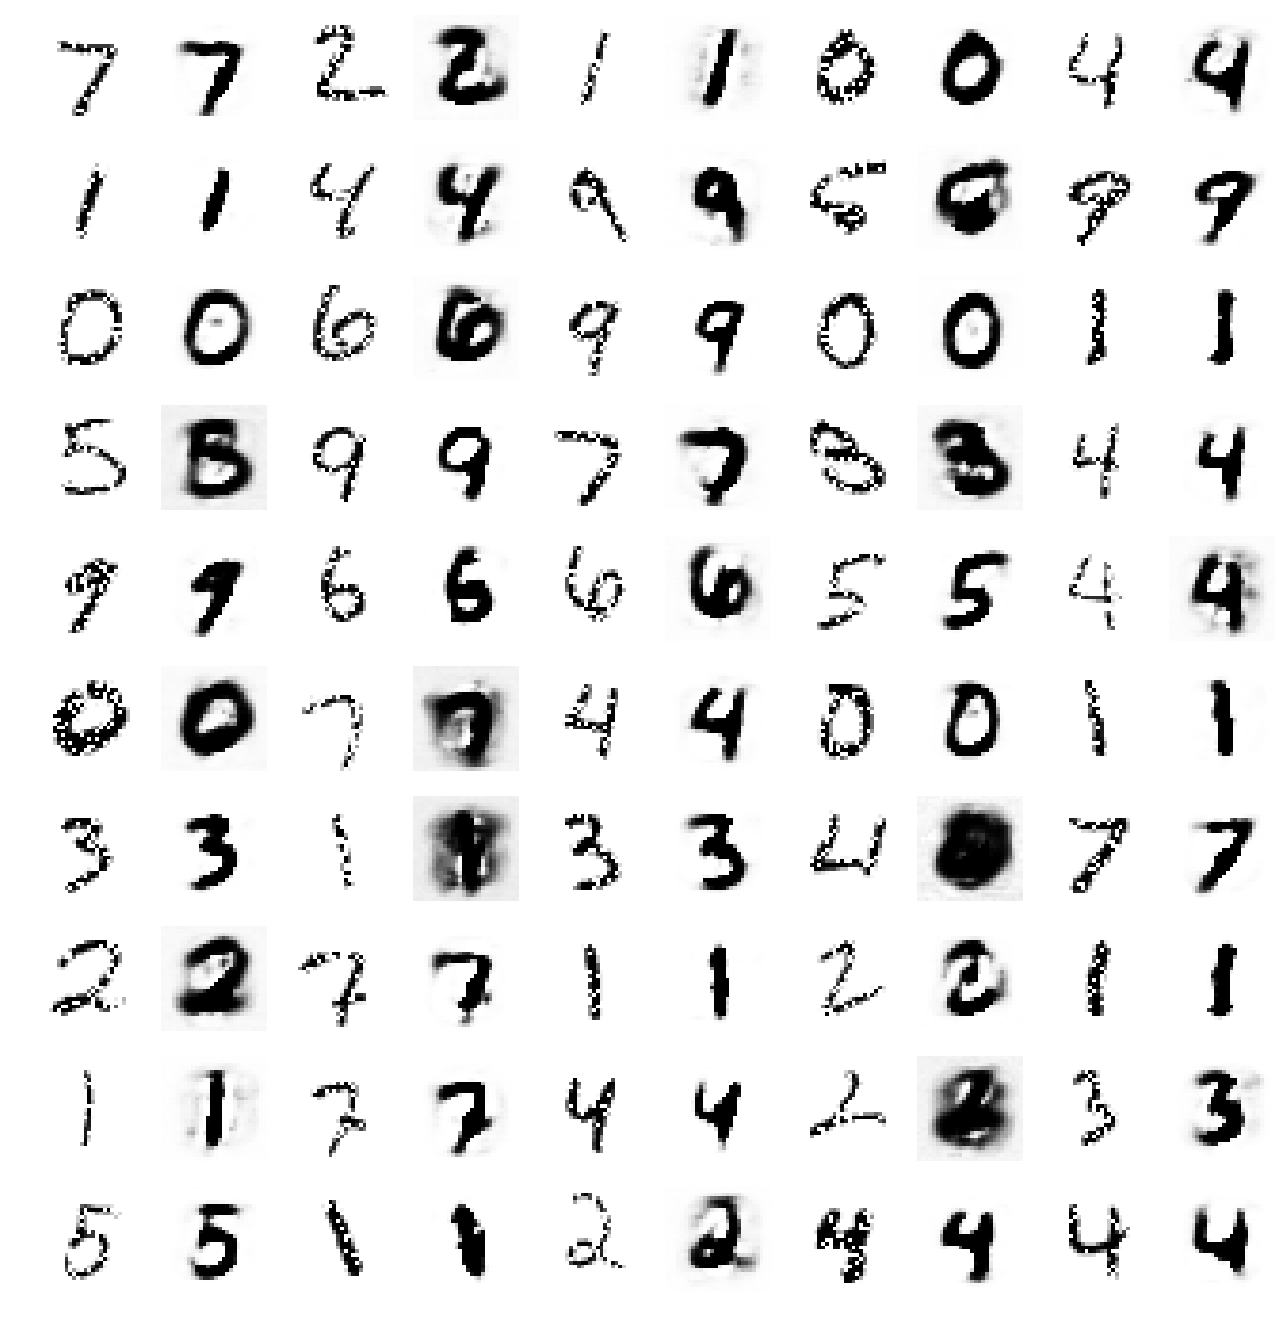 7 7 2 2 1 1 0 0 4 4
1 1 4 4 9 9 5 6 9 9
0 0 6 6 9 9 0 0 1 1
5 8 9 9 7 7 8 3 4 4
9 9 6 6 6 6 5 5 4 4
0 0 7 7 4 4 0 0 1 1
3 3 1 1 3 3 4 7 7
2 2 7 7 1 1 2 2 1 1
1 1 7 7 4 4 2 2 3 3
5 5 1 1 2 2 4 4 4 4